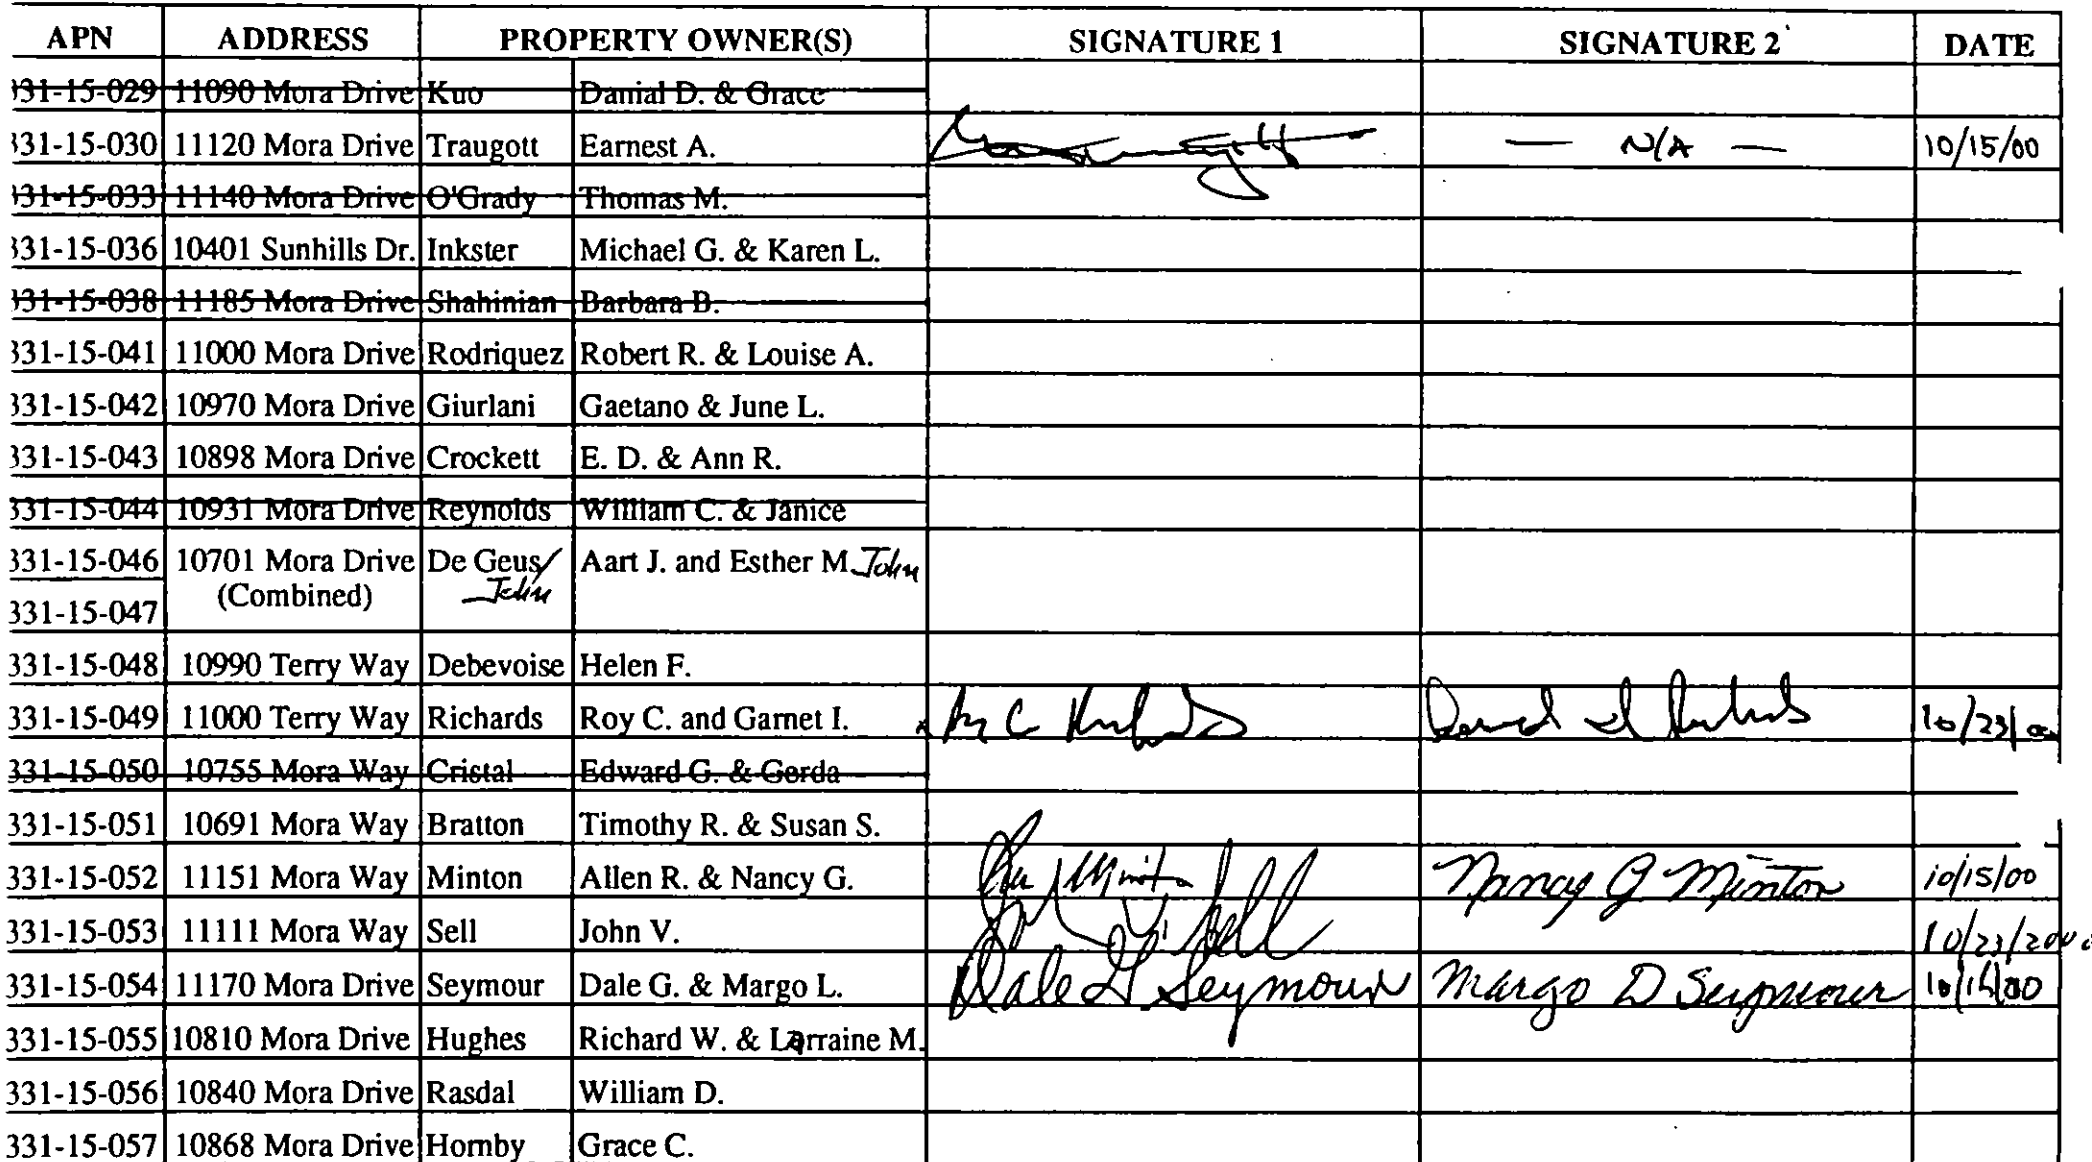 APN ADDRESS PROPERTY OWNER(S) SIGNATURE 1 SIGNATURE 2 DATE
331-15-029 11090 Mora Drive Kuo Danial D. & Grace
331-15-030 11120 Mora Drive Traugott Earnest A. — N/A — 10/15/00
331-15-033 11140 Mora Drive O'Grady Thomas M.
331-15-036 10401 Sunhills Dr. Inkster Michael G. & Karen L.
331-15-038 11185 Mora Drive Shahinian Barbara B.
331-15-041 11000 Mora Drive Rodriquez Robert R. & Louise A.
331-15-042 10970 Mora Drive Giurlani Gaetano & June L.
331-15-043 10898 Mora Drive Crockett E. D. & Ann R.
331-15-044 10931 Mora Drive Reynolds William C. & Janice
331-15-046 10701 Mora Drive De Geus/ Aart J. and Esther M. John
(Combined) John
331-15-047
331-15-048 10990 Terry Way Debevoise Helen F.
331-15-049 11000 Terry Way Richards Roy C. and Garnet I. 10/23/00
331-15-050 10755 Mora Way Cristal Edward G. & Gerda
331-15-051 10691 Mora Way Bratton Timothy R. & Susan S.
331-15-052 11151 Mora Way Minton Allen R. & Nancy G. Minton Nancy G Minton 10/15/00
331-15-053 11111 Mora Way Sell John V. Sell 10/23/2000
331-15-054 11170 Mora Drive Seymour Dale G. & Margo L. Dale G Seymour Margo D Seymour 10/16/00
331-15-055 10810 Mora Drive Hughes Richard W. & Larraine M.
331-15-056 10840 Mora Drive Rasdal William D.
331-15-057 10868 Mora Drive Hornby Grace C.